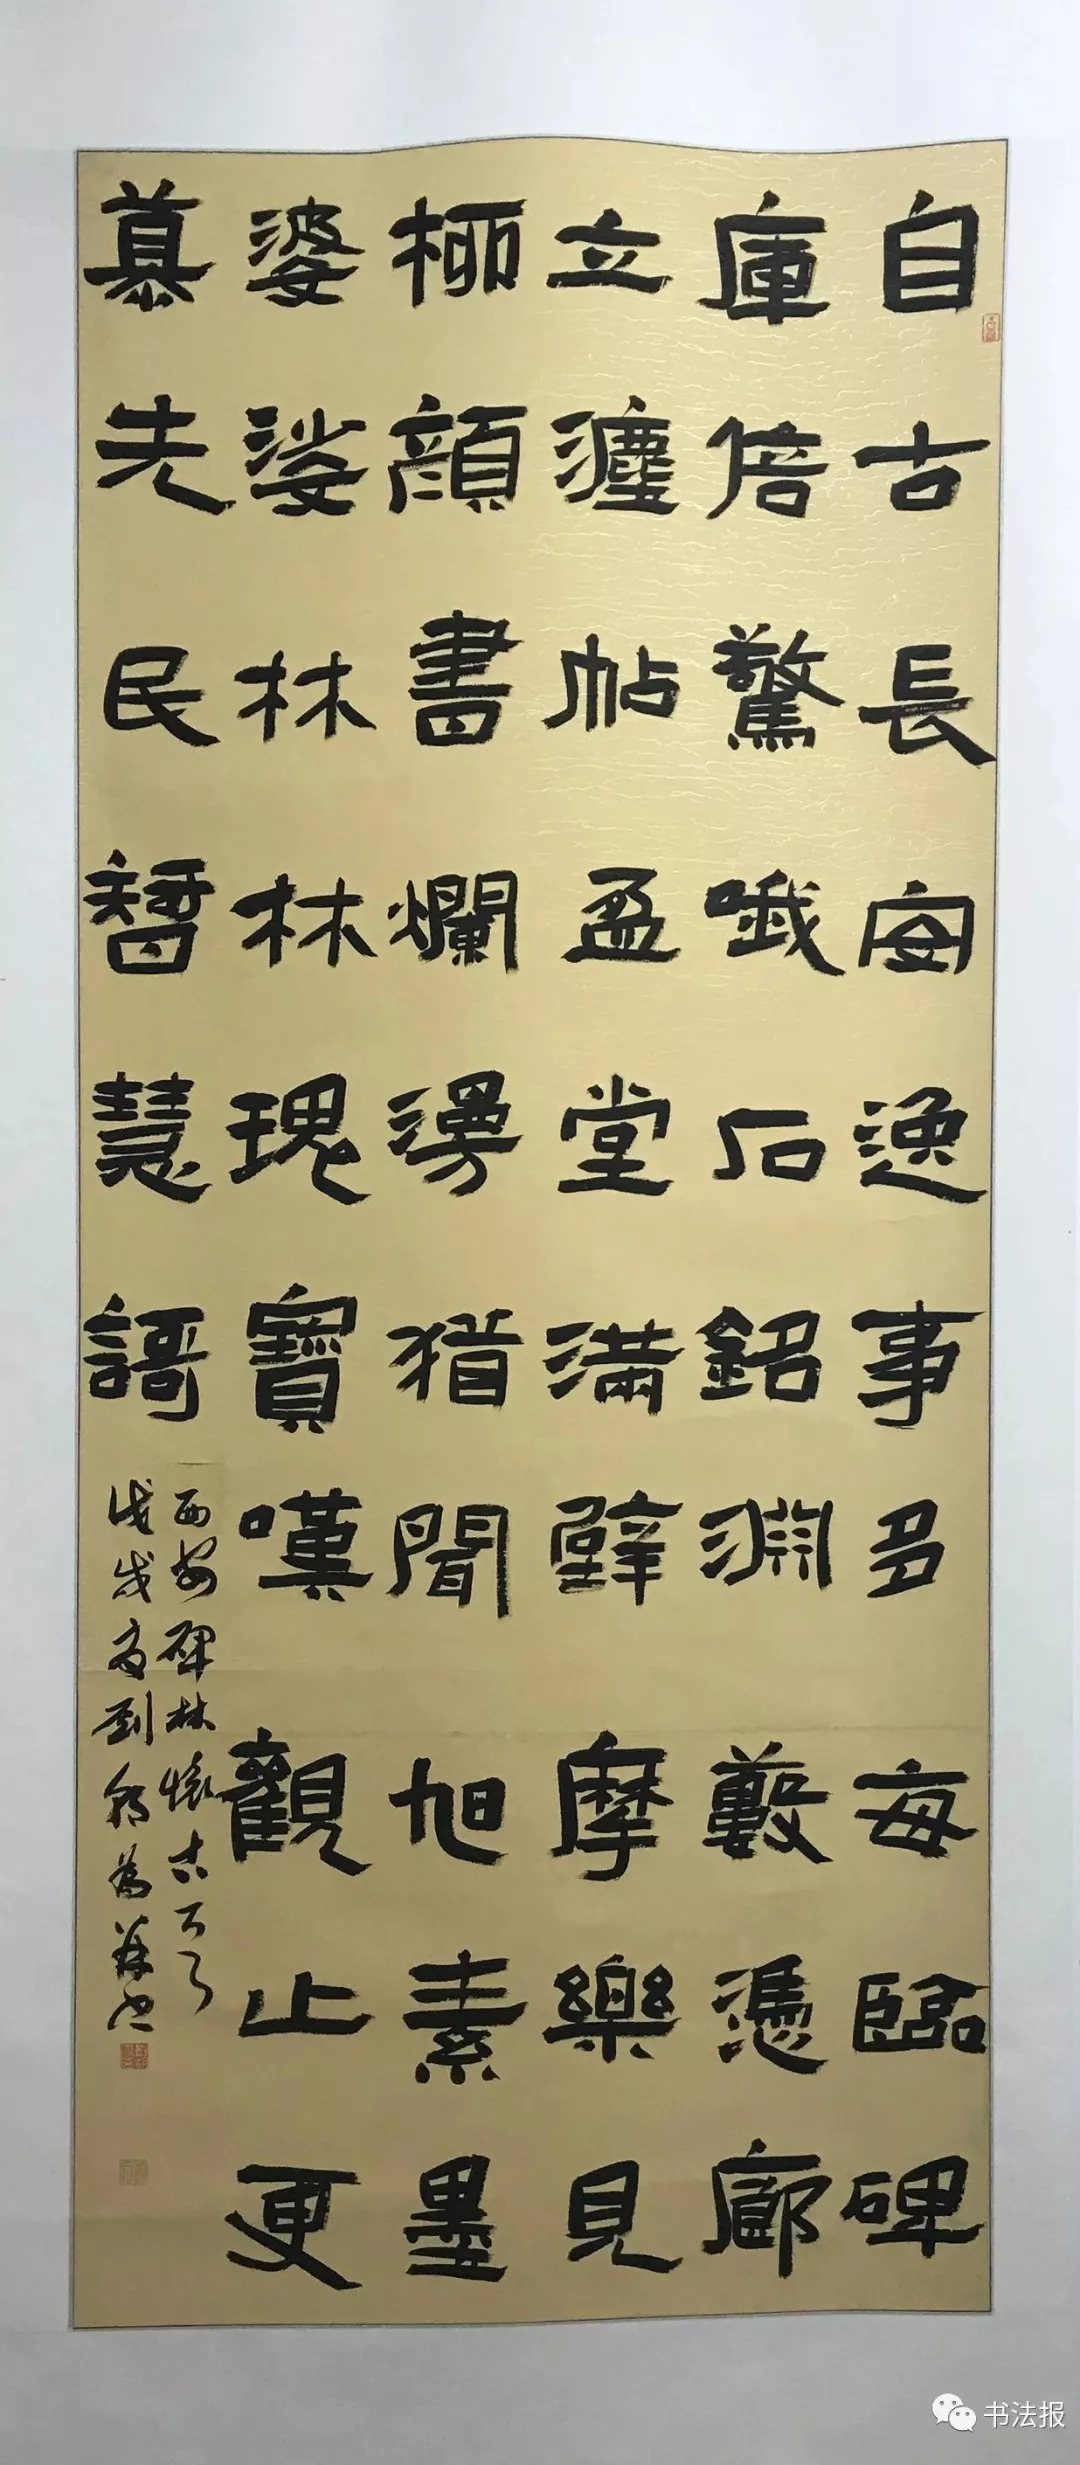 自古長安逸事多每臨碑
庫倍驚哦石銘淵藪憑廊
立灋帖盈堂滿壁摩樂見
柳顏書爛漫猶聞旭素墨
婆娑林林瑰寶嘆觀止更
慕先民智慧謌
西安碑林懷古
戊戌劉
书法报